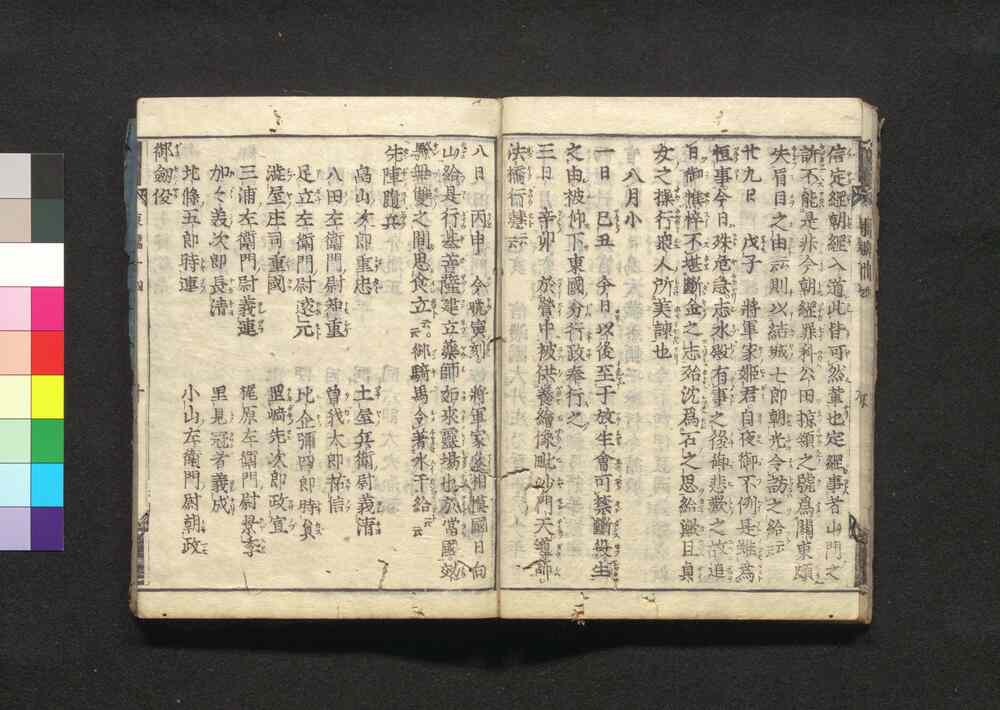 信定經朝經入道此皆可然輩也定經事者山門之
訴不能是非今朝經罪科公田掠領之號爲關東頗
失眉目之由云云則以結城七郎朝光令訪之給云云
廿九日 戊子 將軍家姬君自夜御不例是雖爲
恒事今日殊危急志水殿有事之後御悲歎之故追
日御憔悴不堪斷金之志殆沈爲石之思給歟且貞
女之操行衆人所美談也
八月小
一日 己丑 今日以後至于放生會可禁斷殺生
之由被仰下東國分行政奉行之
三日 辛卯 於營中被供養繪像毗沙門天導師
法橋行慧云云
八日 丙申 今曉寅刻 將軍家參相模國日向
山給是行基菩薩建立藥師如來靈場也於當國効
驗無雙之間思食立云云御騎馬令著水干給云云
先陣隨兵
畠山次郎重忠 土屋兵衞尉義清
八田左衞門尉知重 曾我太郎祐信
足立左衞門尉遠元 比企彌四郎時員
澁屋庄司重國 里崎先次郎政宣
三浦左衞門尉義連 梶原左衞門尉景季
加々美次郎長清 里見冠者義成
北條五郎時連 小山左衞門尉朝政
御劔役